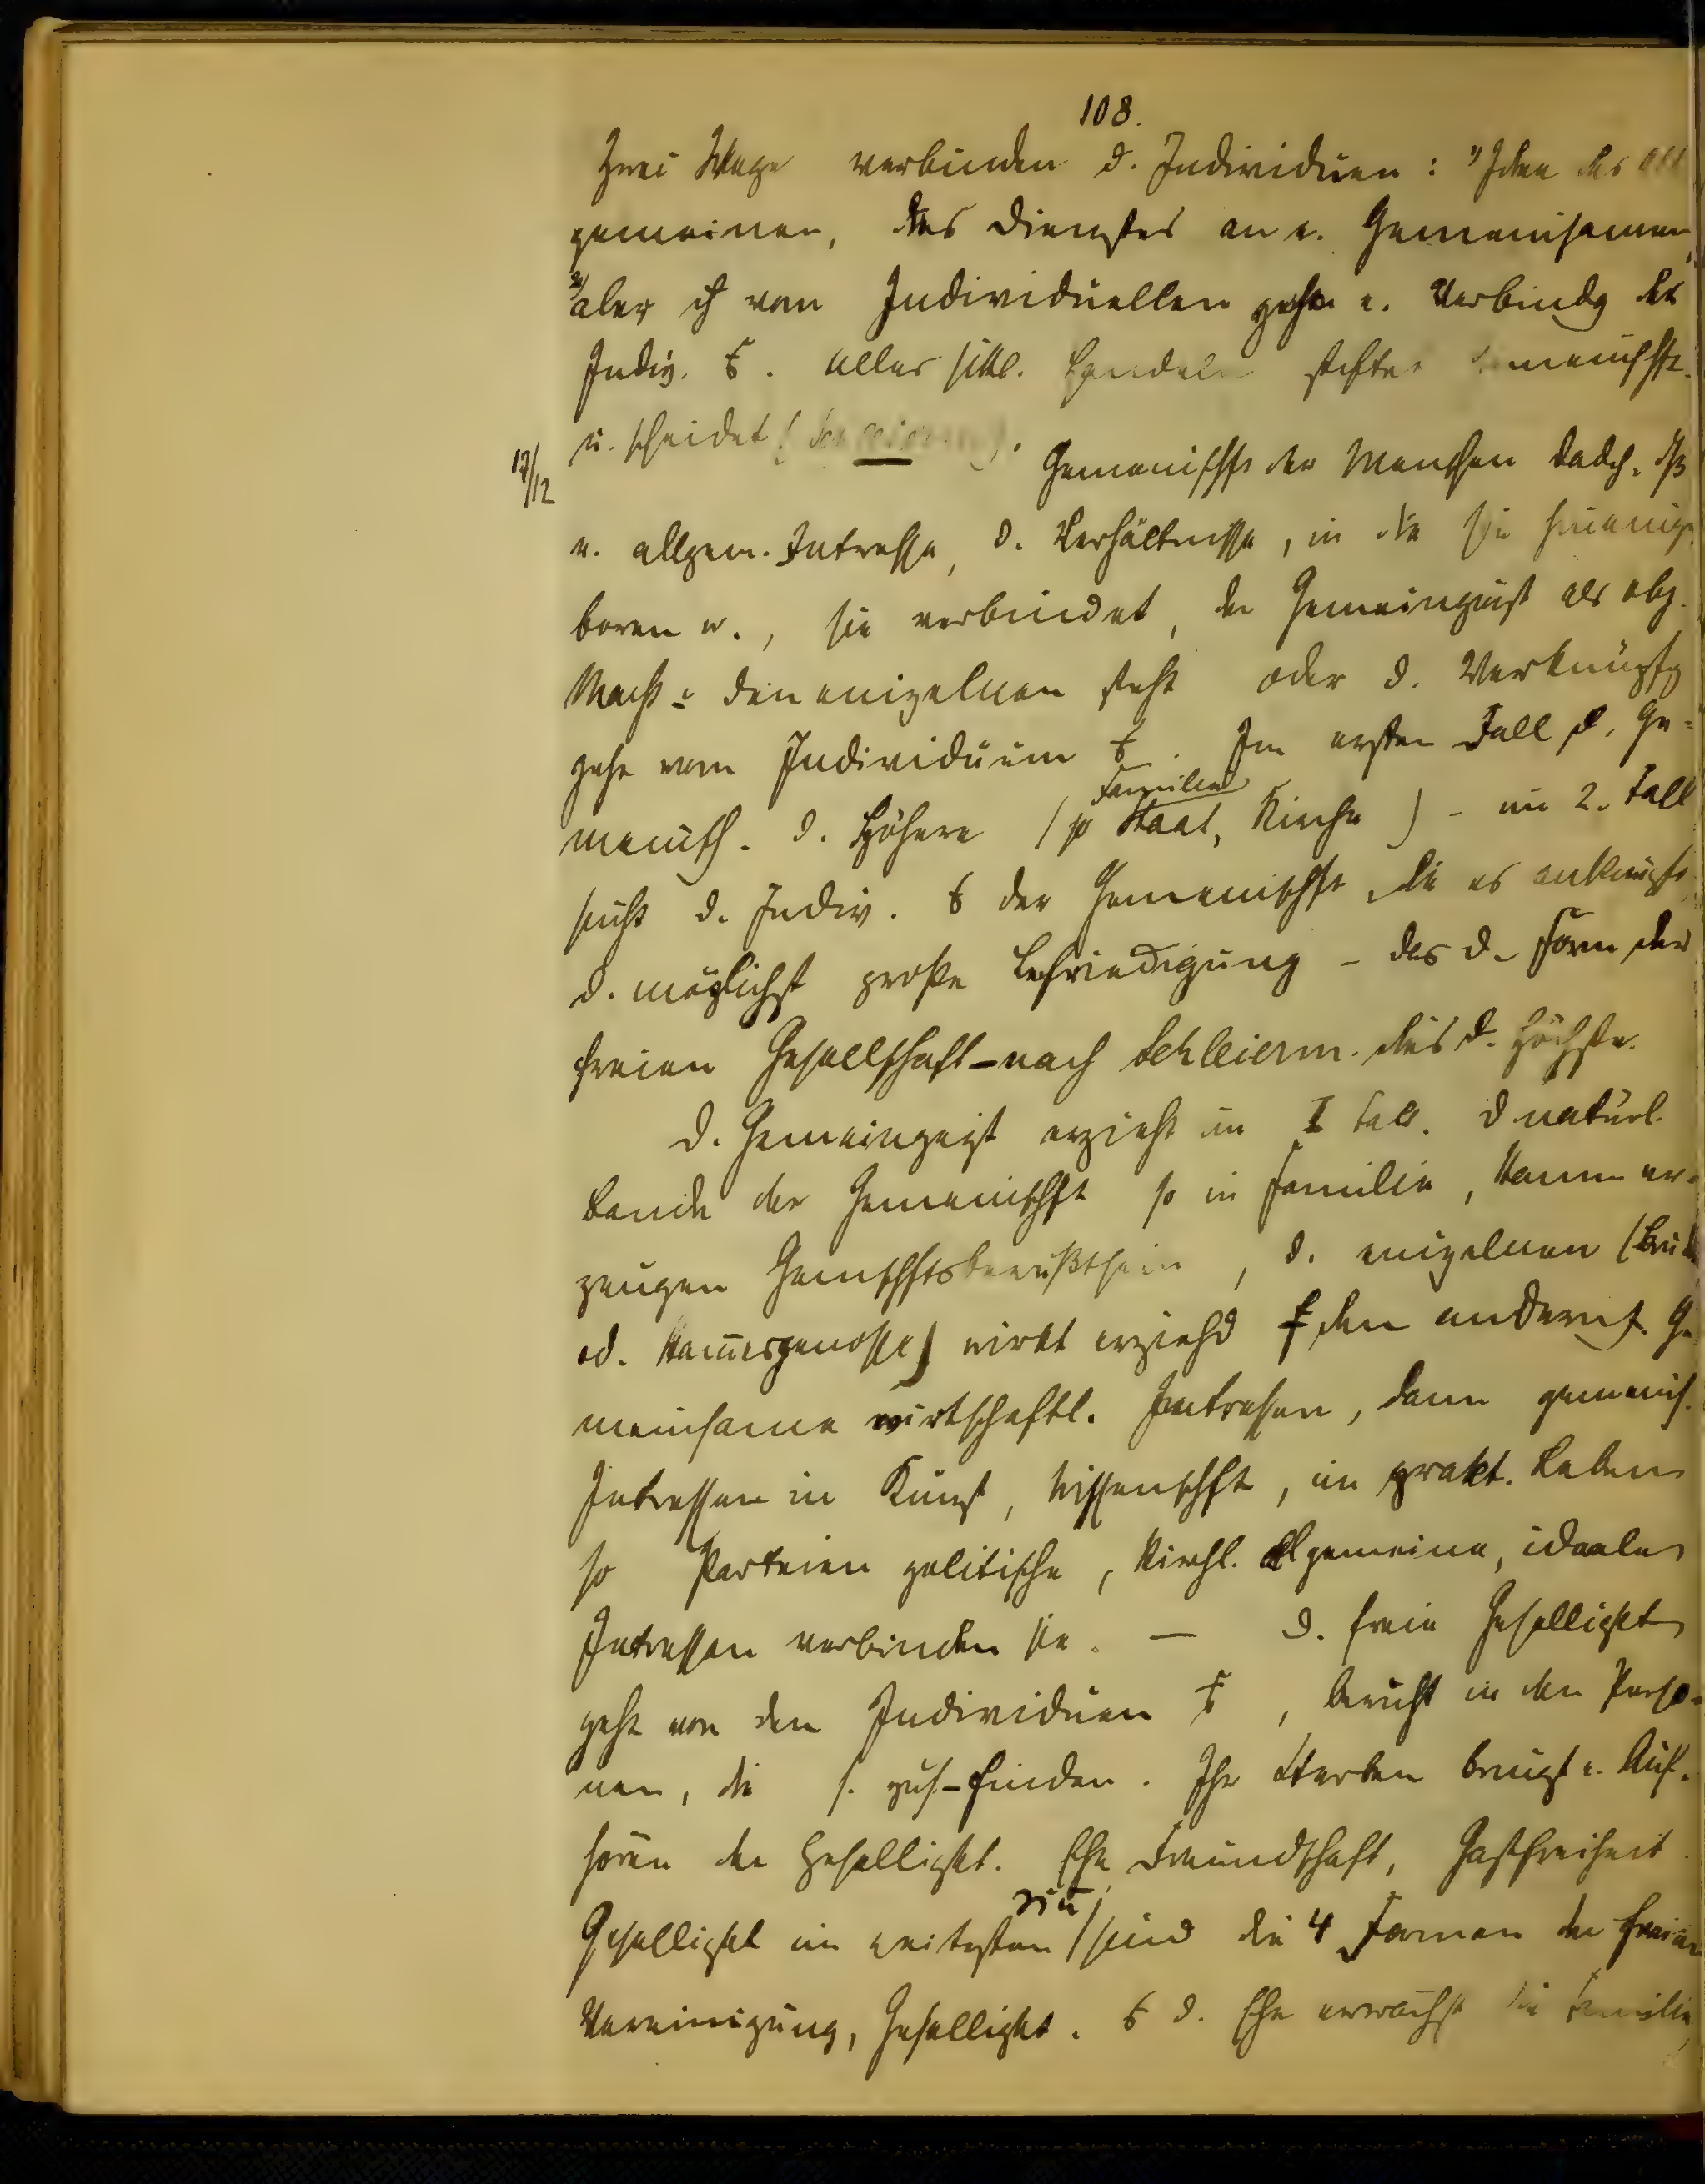 108.
Zwei Wege verbinden d. Individuen: "Idee des All
gemeinen, des Dienstes an e. Gemeinsamen,
2/ aber ich vom Individuellen gehe e. Verbindg der
Indiv. alles sittl. Handeln stiftet Gemeinschft.
u. scheidet
17/12
Gemeinschft der Menschen dadch. dß
e. allgem. Intresse, d. Verhältnisse, in die sie hineinge-
boren w., sie verbindet, der Gemeingeist als obj.
Macht den einzelnen steht oder d. Verknüpfg
geht vom Individuum . Im ersten Fall d. Ge-
meinsch. d. Höhere (so Familie Staat, Kirche) - im 2. Fall
sucht d. Indiv. der Gemeinschft, die es anknüpft
d. möglichst große Befriedigung - das d. Form der
freien Gesellschaft - nach Schleierm. dies d. Höchste.
D. Gemeingeist erzieht im I Fall. D natürl.
Bande der Gemeinschft so in Familie, Stamm er-
zeugen Gemschftsbewußtsein, d. einzelnen (Bruder
od. Stam̄esgenosse) wirkt erziehd f den andern f. Ge
meinsame wirtschaftl. Intressen, dann gemeins.
Intressen in Kunst, Wissenschft, im prakt. Leben
so Parteien politische, kirchl. Allgemeine, ideale
Intressen verbinden sie. — D. freie Geselligkt
geht von den Individuen , beruht in den Perso-
nen, die s. zus-finden. Ihr Sterben bringt e. Auf-
hören der Geselligkt. Ehe Freundschaft, Gastfreiheit
Geselligkt im weitesten / sind die 4 Formen der freien
Vereinigung, Geselligkt. d. Ehe erwächst die Familie,